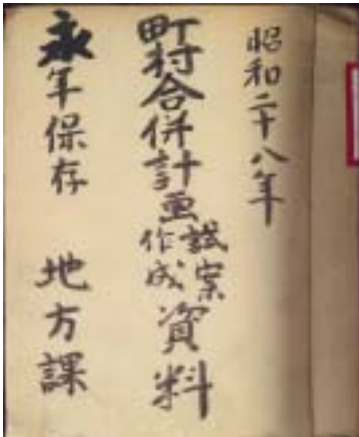 昭和二十八年
町村合併計画試案作成資料
永年保存 地方課